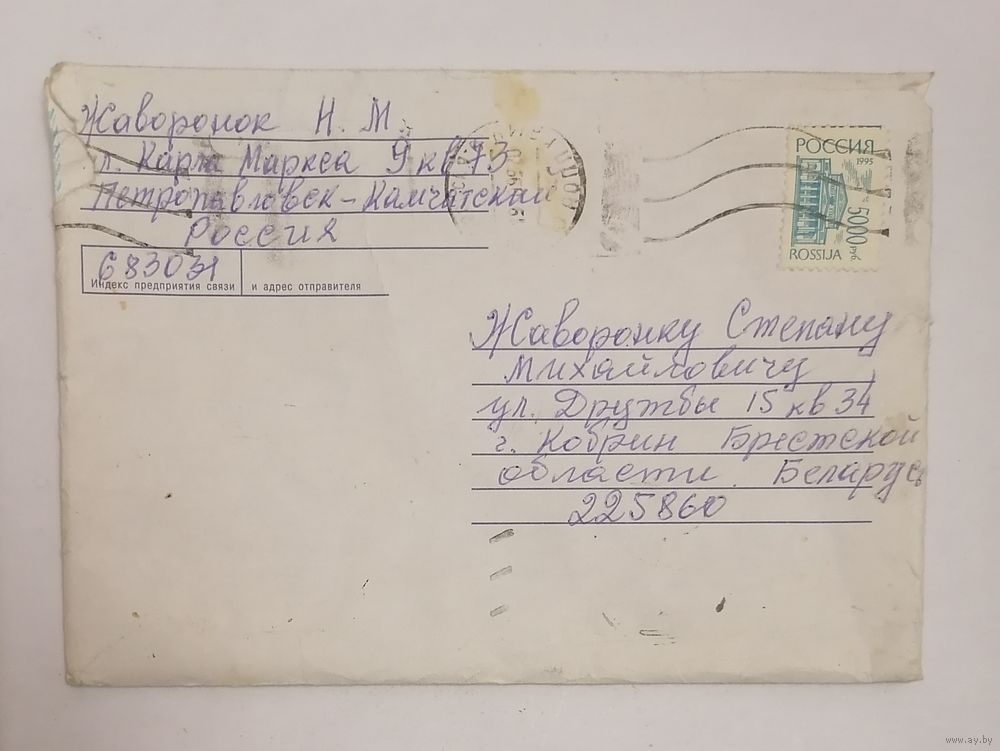 Жаворонок Н. М
ул. Карла Маркса 9 кв 73
Петропавловск-Камчатский
Россия
683031
Индекс предприятия связи и адрес отправителя
РОССИЯ
1995
5000 руб.
ROSSIJA
Жаворонку Степану
Михайловичу
ул. Дружбы 15 кв 34
г. Кобрин Брестской
области Беларусь
225860
www.ay.by